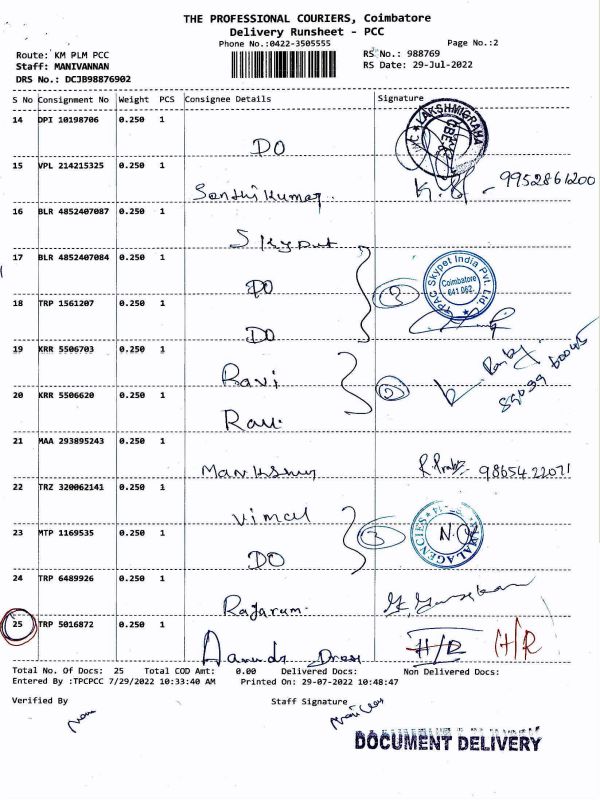 THE PROFESSIONAL COURIERS, Coimbatore
Delivery Runsheet - PCC
Phone No.:0422-3505555
Page No.:2
Route: KM PLM PCC
RS No.: 988769
Staff: MANIVANNAN
RS Date: 29-Jul-2022
DRS No.: DCJB98876902
S No Consignment No Weight PCS Consignee Details Signature
14 DPI 10198706 0.250 1
DO
LAKSHMIGRAHA
15 VPL 214215325 0.250 1
Santhi Kumar. 9952861200
16 BLR 4852407087 0.250 1
Skypet
17 BLR 4852407084 0.250 1
DO 3
PAC Skypet India Pvt. Ltd.
Coimbatore
641 062.
18 TRP 1561207 0.250 1
DO
19 KRR 5506703 0.250 1
Ravi
20 KRR 5506620 0.250 1
Ravi 2
21 MAA 293895243 0.250 1
R. Prabu 9865422071
22 TRZ 320062141 0.250 1
Vimal
23 MTP 1169535 0.250 1
DO 3
AGENCIES
24 TRP 6489926 0.250 1
Rajaram.
25 TRP 5016872 0.250 1
H/R H/R
Total No. Of Docs: 25 Total COD Amt: 0.00 Delivered Docs: Non Delivered Docs:
Entered By :TPCPCC 7/29/2022 10:33:40 AM Printed On: 29-07-2022 10:48:47
Verified By Staff Signature
DOCUMENT DELIVERY